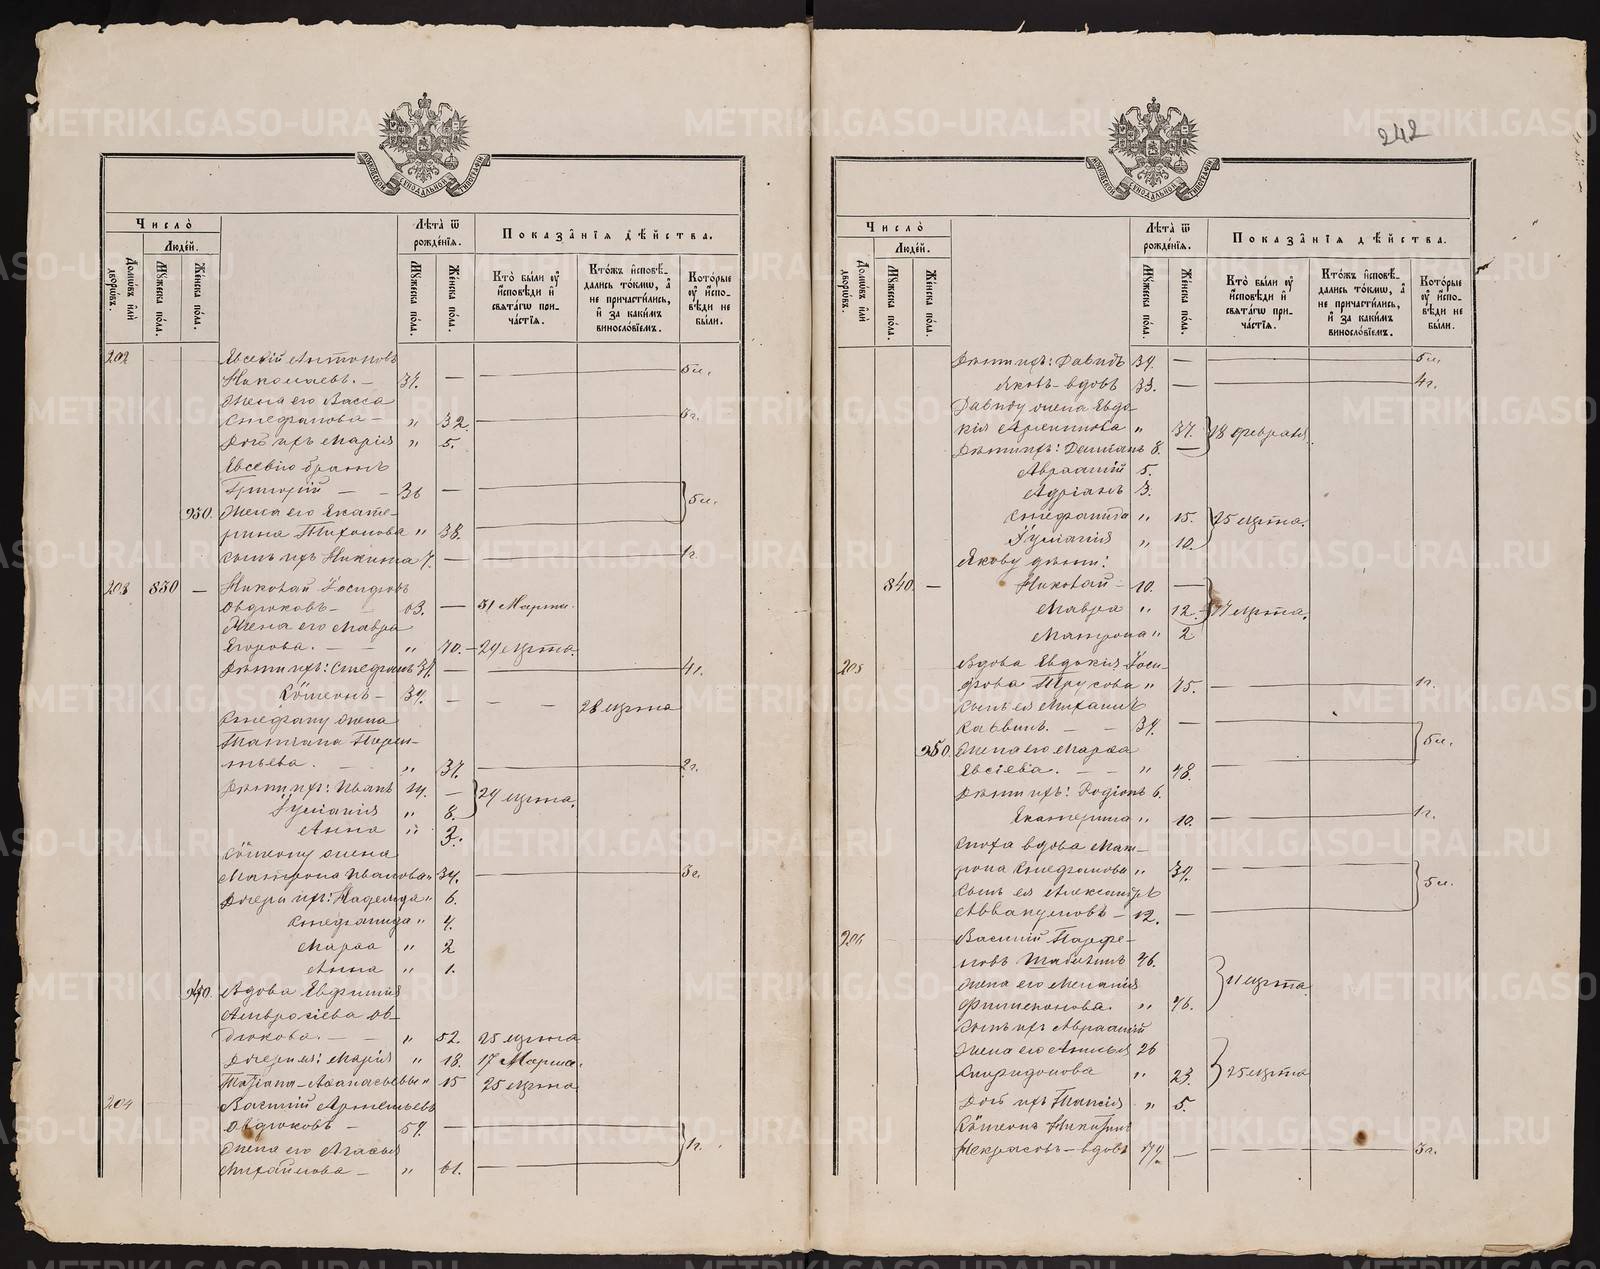 242
МОСКОВСКОЙ СѴНОДАЛЬНОЙ ТИПОГРАФІИ
Число̀
Людей.
Домѡвъ илѝ дворѡвъ.
Мꙋжеска пола.
Женска пола.
Лѣта ѿ рожденїѧ.
Мꙋжеска пола.
Женска пола.
Показанїѧ дѣйства.
Кто̀ были ᲂу҆ исповѣди и҆ свѧтагѡ причастїѧ.
Кто́жъ исповѣдались то́кмѡ, а҆ не причастились, и҆ за какимъ винословїемъ.
Которые ᲂу҆ исповѣди не были.
202 Евсевій Антоновъ
Николаевъ. — 34. — 5 л.
Жена его Васса
Стефанова — „ 32.
Дочь ихъ Марія „ 5.
Евсевію братъ
Григорій — — 36 — 5 л.
930. Жена его Екате-
рина Тихонова „ 38.
Сынъ ихъ Никита 7. — 1 г.
203 830 — Николай Іосифовъ
Овдюковъ — 63. — 31 Марта.
Жена его Мавра
Егорова. — — „ 70. — 29 Марта.
Дѣти ихъ: Стефанъ — 4 г.
Сѷмеонъ — 34. — — — 28 Марта
Стефану жена
Татьяна Терен-
тьева. — „ 37. — 2 г.
Дѣти ихъ: Иванъ 14. — 29 Марта.
Іуліанія „ 8.
Анна „ 3.
Сѷмеону жена
Матрона Иванова „ 34. — 3 г.
Дочери ихъ: Надежда „ 6.
Стефанида „ 4.
Марѳа „ 2
Анна „ 1.
940. Вдова Евфимія
Амвросіева Ов-
дюкова. — — „ 52. 25 Марта
Дочери ея: Марія „ 18. 17 Марта.
Татіана — Аѳанасьевы „ 15 25 Марта
204 Василій Артемьевъ
Овдюковъ — 59. — 1 г.
Жена его Агаѳья
Михайлова — „ 61.
Число̀
Людей.
Домѡвъ илѝ дворѡвъ.
Мꙋжеска пола.
Женска пола.
Лѣта ѿ рожденїѧ.
Мꙋжеска пола.
Женска пола.
Показанїѧ дѣйства.
Кто̀ были ᲂу҆ исповѣди и҆ свѧтагѡ причастїѧ.
Кто́жъ исповѣдались то́кмѡ, а҆ не причастились, и҆ за какимъ винословїемъ.
Которые ᲂу҆ исповѣди не были.
Дѣти ихъ: Давидъ 39. — 5 л.
Яковъ — вдовъ 33. — 4 г.
Давиду жена Евдо-
кія „ 37. 18 Февраля.
Дѣти ихъ: Даміанъ 8. —
Авраамій 5.
Адріанъ 3.
Стефанида „ 15. 25 Марта.
Іуліанія „ 10.
Якову дѣти:
840. — Николай — 10. —
Мавра „ 12. 17 Марта.
Матрона „ 2
205 Вдова Евдокія Іоси-
фова Трусова „ 75. — 1 г.
Сынъ ея Михаилъ
Савинъ. — — 39. — 5 л.
950. Жена его Марѳа
Евсіева. — — „ 48.
Дѣти ихъ: Родіонъ 6.
Екатерина „ 10. — 1 г.
Сноха вдова Мат-
рона Стефанова „ 39. — 5 л.
Сынъ ея Александръ
Аввакумовъ — 12. —
206 Василій Парфе-
новъ 46. 11 Марта.
Жена его Меланія
Филимонова. „ 46.
Сынъ ихъ Авраамій
Жена его 26
Спиридонова „ 23. 25 Марта
Дочь ихъ Таисія „ 5.
Сѷмеонъ Никитинъ
Некрасовъ — вдовъ — 3 г.
METRIKI.GASO-URAL.RU